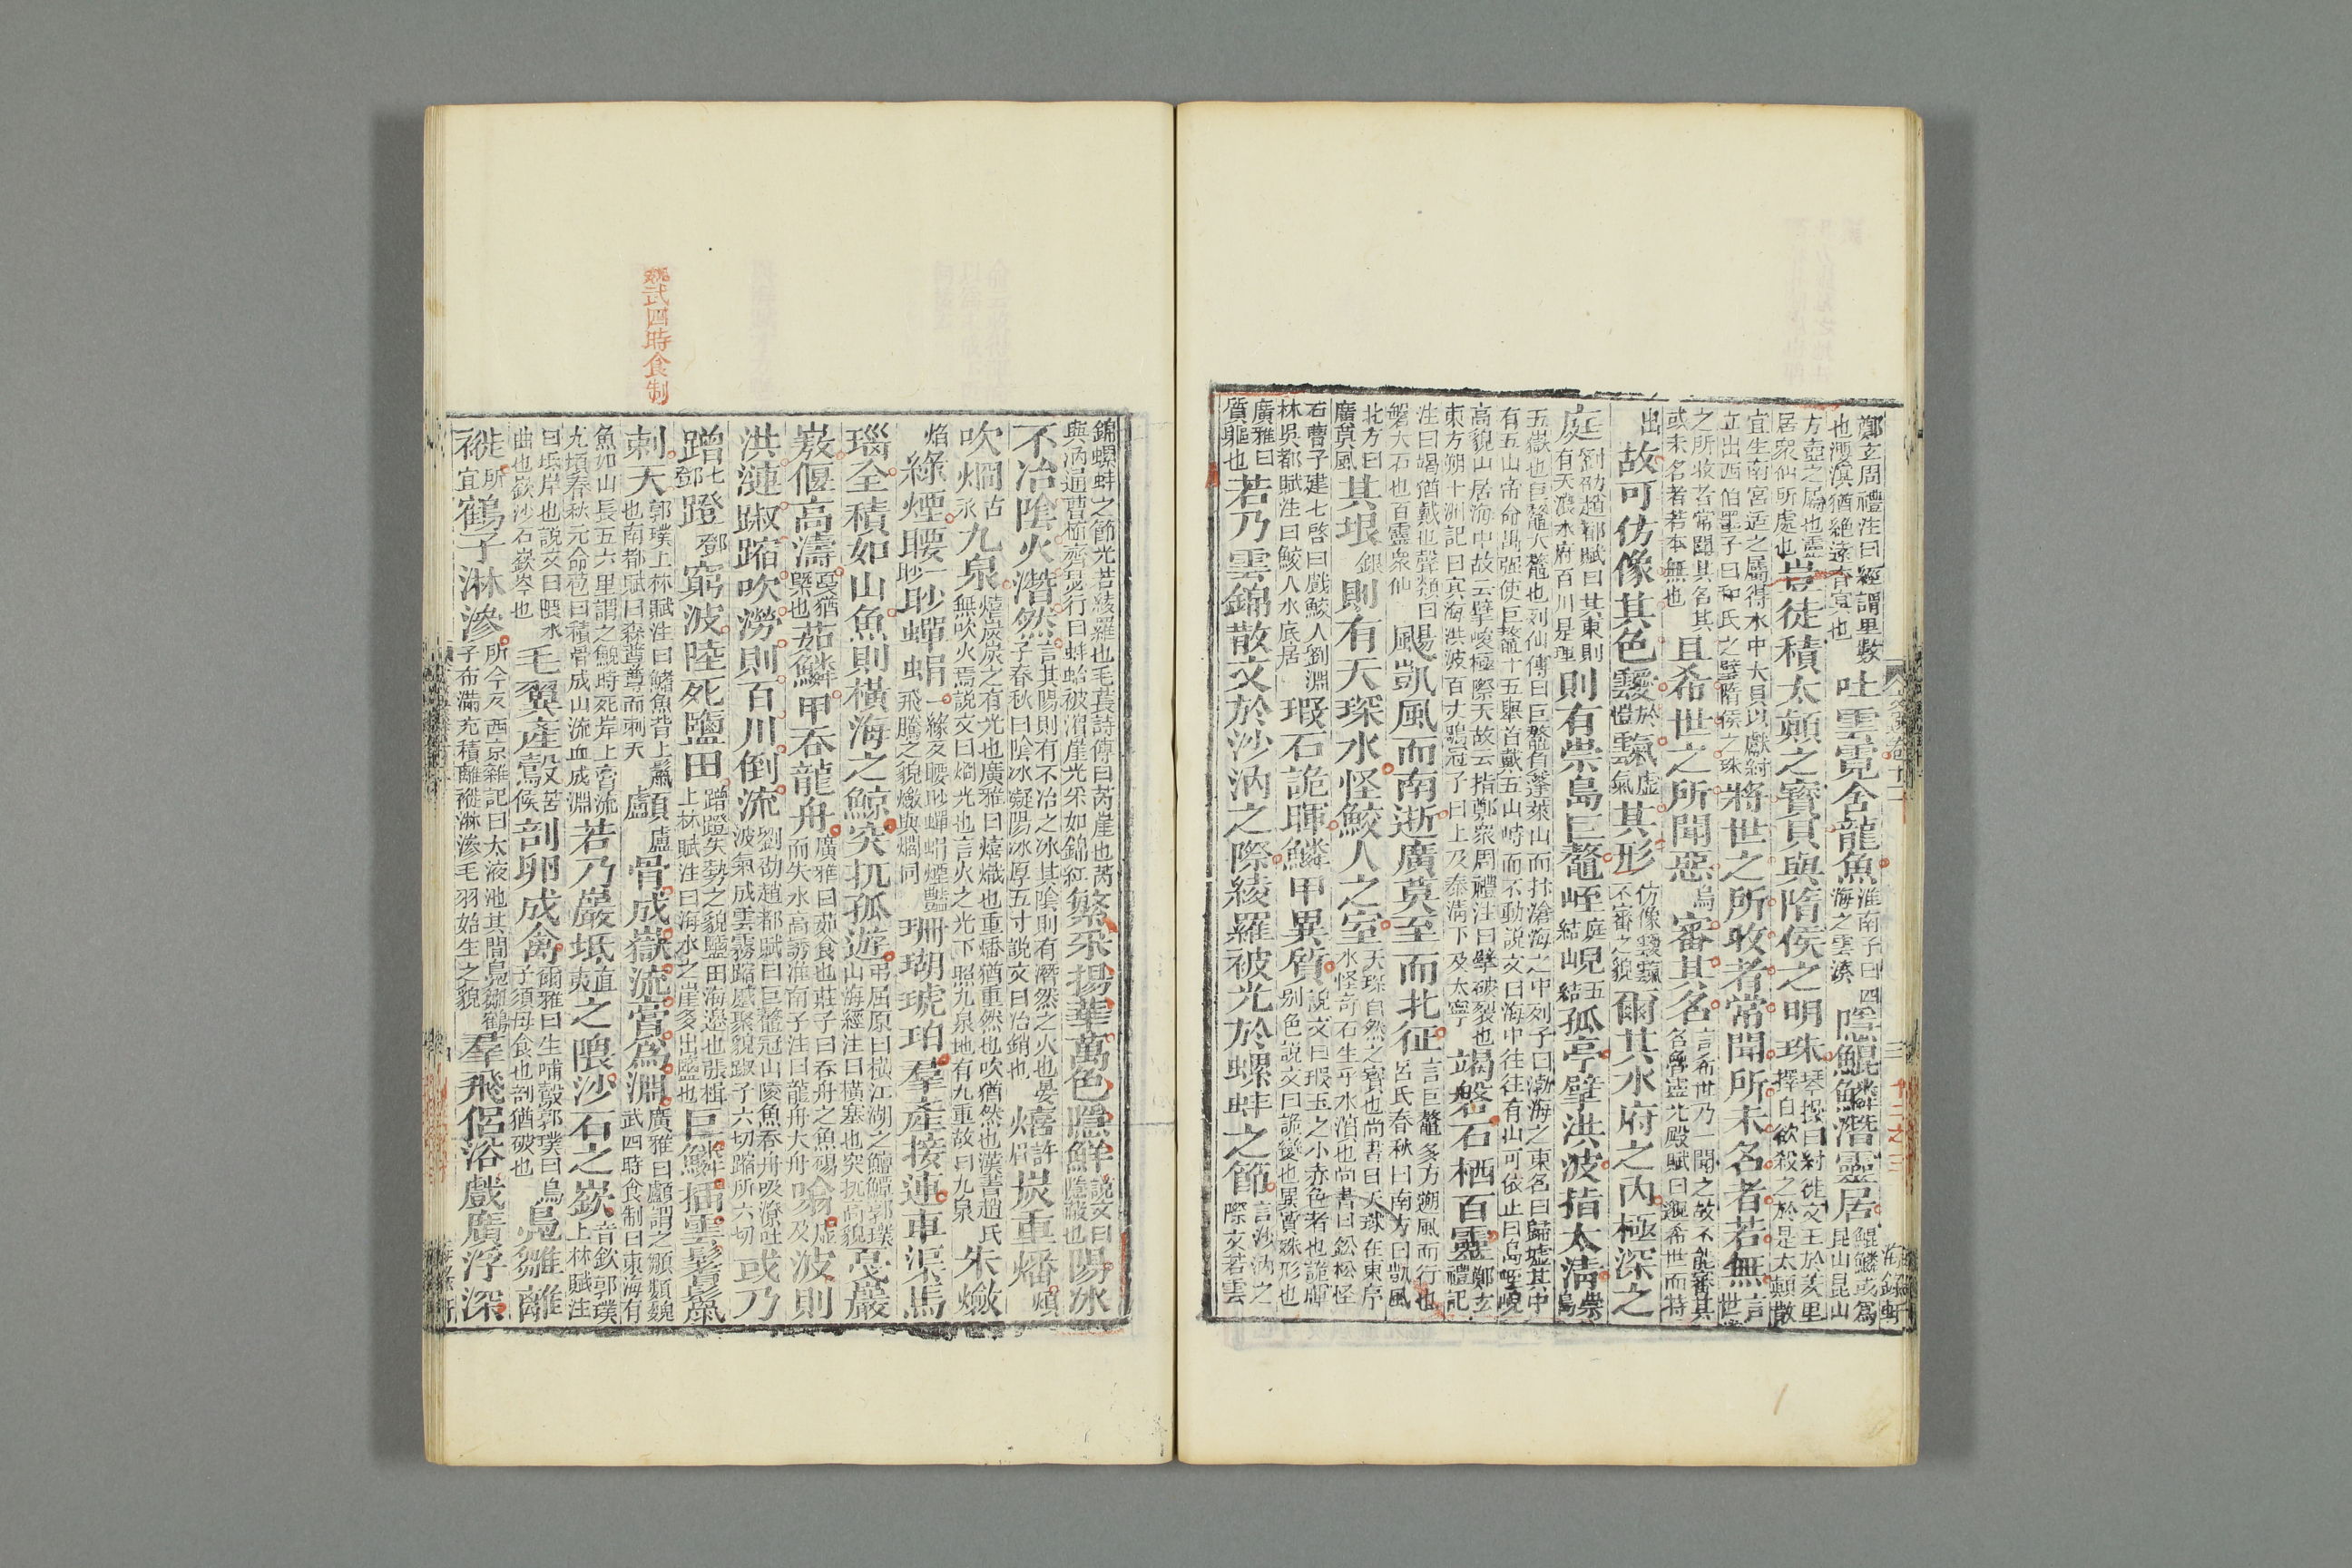 鄭玄周禮注曰經謂里數也湮滇猶絶遠杳冥也吐雲霓含龍魚淮南子曰四海之雲湊隱鯤鱗潛靈居鯤鱗或爲昆山昆山
方壺之屬也靈居衆仙所處也豈徒積太顛之寶貝與隋侯之明珠琴操曰紂徙文王於羑里擇日欲殺之於是太顛散
宜生南宮适之屬得水中大貝以獻紂立出西伯墨子曰和氏之璧隋侯之珠將世之所收者常聞所未名者若無言世
之所收者常聞其名其或未名者若本無也且希世之所聞惡烏審其名言希世乃一聞之故不能審其名魯靈光殿賦曰邈希世而特
出故可仿像其色靉於愷霼虛氣其形仿像靉霼不審之貌爾其水府之內極深之
庭劉劭趙都賦曰其東則有天浪水府百川是理則有崇島巨鼇峌庭結峴五結孤亭擘洪波指太清崇島
五嶽也巨鼇大龜也列仙傳曰巨鼇負蓬萊山而抃滄海之中列子曰渤海之東名曰歸墟其中有五山帝命禺强使巨鼇十五舉首戴五山峙而不動說文曰海中往往有山可依止曰島峌峴
高貌山居海中故云擘峻極際天故云指鄭衆周禮注曰擘破裂也東方朔十洲記曰冥海洪波百丈鶡冠子曰上及泰淸下及太寧竭磐石栖百靈鄭玄禮記
注曰竭猶戴也聲類曰磐大石也百靈衆仙颺凱風而南逝廣莫至而北征言巨鼇多力遡風而行也呂氏春秋曰南方曰凱風
北方曰廣莫風其垠銀則有天琛水怪鮫人之室天琛自然之寶也尚書曰天球在東序水怪奇石生乎水涓也尚書曰鈆松怪
石曹子建七啓曰戲鮫人劉淵林吳都賦注曰鮫人水底居瑕石詭暉鱗甲異質說文曰瑕玉之小赤色者也詭暉別色說文曰詭變也異質殊形也
廣雅曰質軀也若乃雲錦散文於沙汭之際綾羅被光於螺蚌之節言沙汭之際文若雲
錦螺蚌之節光若綾羅也毛萇詩傳曰芮崖也芮與汭通曹植齊瑟行曰蚌蛤被濱崖光采如錦紅繁采揚華萬色隱鮮說文曰隱蔽也陽冰
不冶陰火潛然言其陽則有不冶之冰其陰則有潛然之火也晏子春秋曰陰冰凝陽冰厚五寸說文曰冶銷也熺許眉炭重燔煩
吹烱古永九泉熺炭炭之有光也廣雅曰熺熾也重燔猶重然也吹猶然也漢書趙氏無吹火焉說文曰烱光也言火之光下照九泉地有九重故曰九泉朱燄
焰綠煙腰一眇眇蟬蜎一緣反腰眇蟬蜎煙豔飛騰之貌燄與爓同珊瑚琥珀羣產接連車渠馬
瑙全積如山魚則橫海之鯨突扤孤遊弔屈原曰橫江湖之鱣鯨郭璞山海經注曰橫塞也突扤高貌戛巖
嶅偃高濤戛猶槩也茹鱗甲吞龍舟廣雅曰茹食也莊子曰吞舟之魚碭而失水高誘淮南子注曰龍舟大舟噏虛及波則
洪漣踧蹜吹澇則百川倒流劉劭趙都賦曰巨鼇冠山陵魚吞舟吸潦吐波氣成雲霧蹜蹙聚貌踧子六切蹜所六切或乃
蹭七鄧蹬鄧窮波陸死鹽田蹭蹬失勢之貌鹽田海邊也張楫上林賦注曰海水之崖多出鹽也巨鱗插雲鬐鬣
刺天郭璞上林賦注曰鰭魚背上鬣也南都賦曰森蓴蓴而刺天顱盧骨成嶽流膏爲淵廣雅曰顱謂之頭顱魏武四時食制曰東海有
魚如山長五六里謂之鯢時死岸上膏流九頃春秋元命苞曰積骨成山流血成淵若乃巖坻直夷之隈沙石之嶔音欽郭璞上林賦注
曰坻岸也說文曰隈水曲也嶔沙石嶔岑也毛翼產鷇苦候剖卵成禽爾雅曰生哺鷇郭璞曰鳥子須母食也剖猶破也鳧雛離
褷所宜鶴子淋滲所今反西京雜記曰太液池其間鳧雛鶴子布滿充積離褷淋滲毛羽始生之貌羣飛侶浴戲廣浮深
魏武四時食制